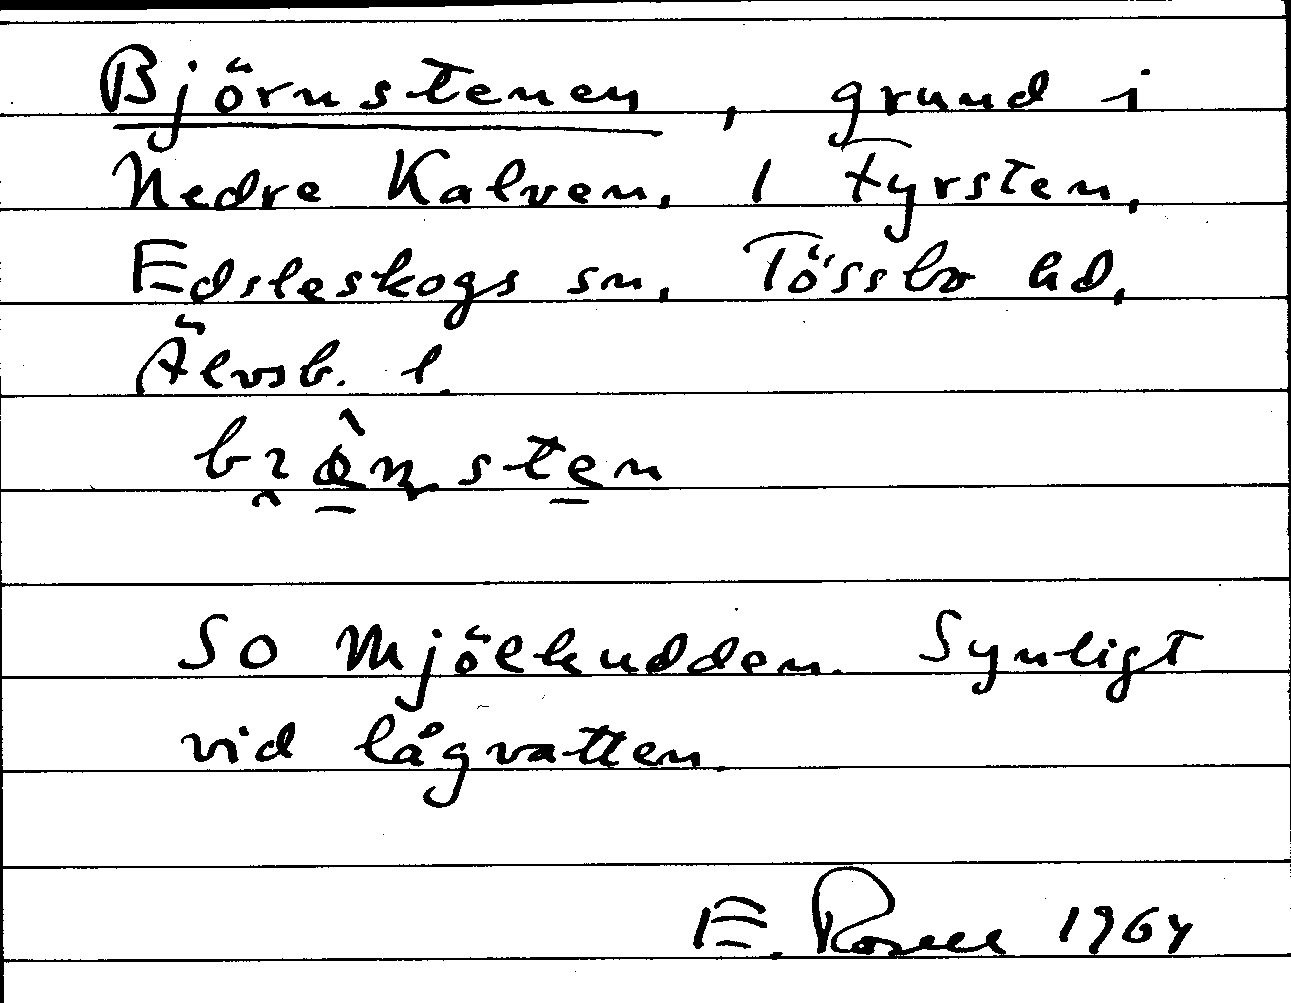 Björnstenen, grund i
Nedre Kalven, 1 Fyrsten,
Edsleskogs sn, Tössbo hd,
Älvsb. l.
SO Mjölkudden. Synligt
vid lågvatten.
E. 1964